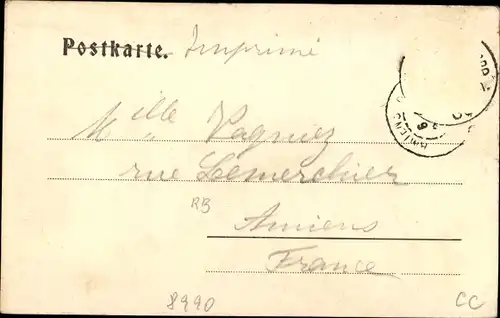 Postkarte. Imprimé
Mlle Vagniez
rue Lemerchier
RB
Amiens
France
8990
CC